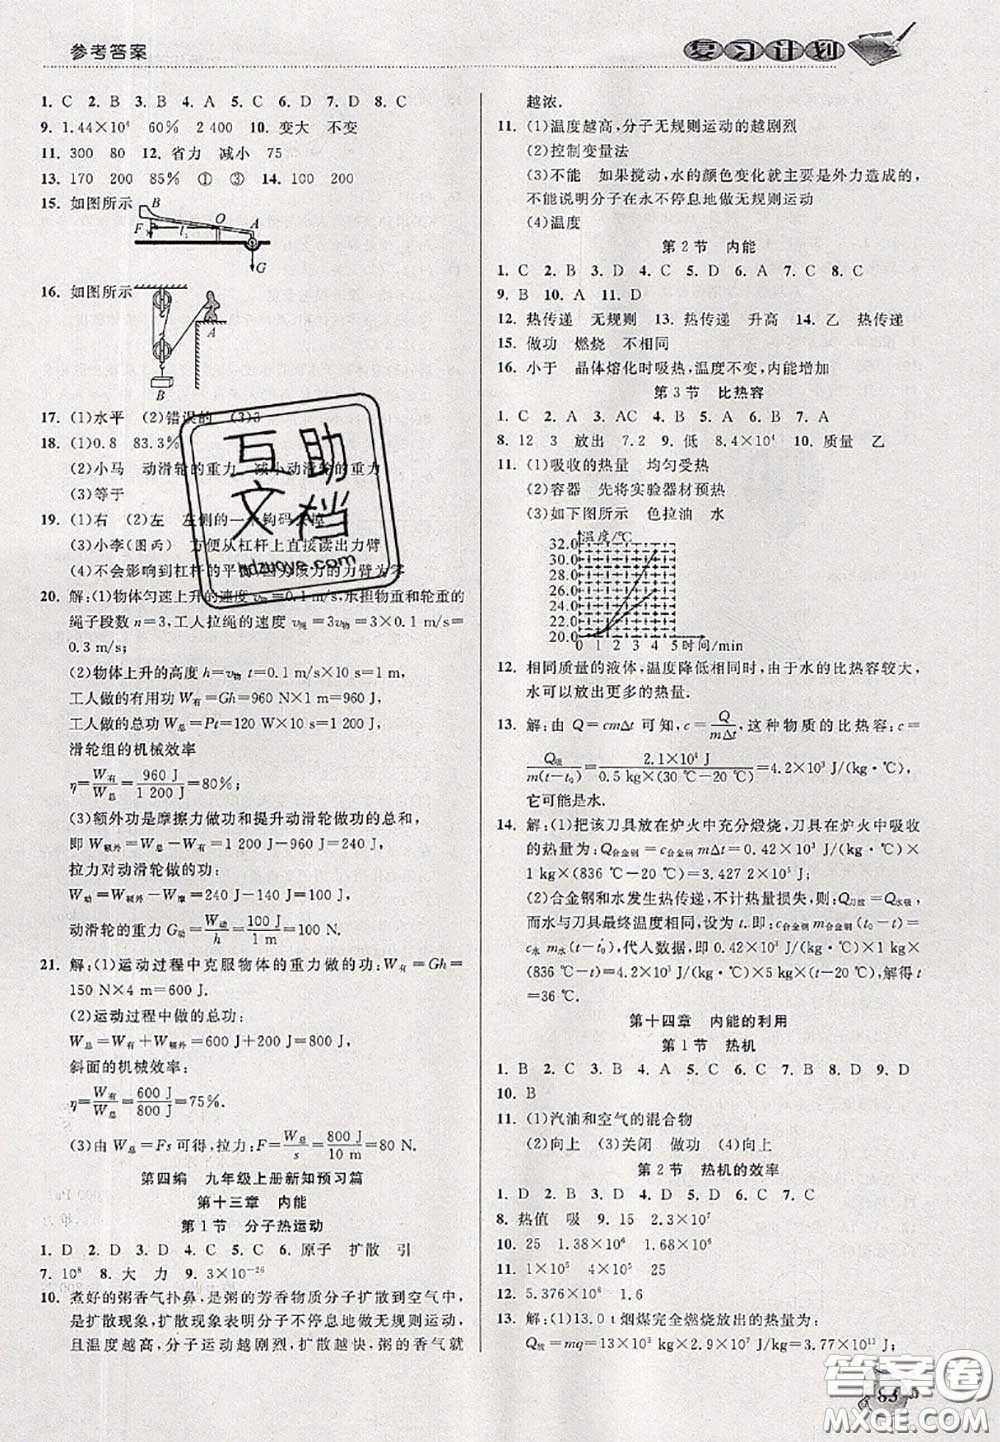 参考答案
复习计划
1. C 2. B 3. B 4. A 5. C 6. D 7. D 8. C
9. 1.44×10⁴ 60% 2 400 10. 变大 不变
11. 300 80 12. 省力 减小 75
13. 170 200 85% ① ③ 14. 100 200
15. 如图所示
B O A
F l₁
G
16. 如图所示
A
B
17. (1)水平 (2)错误的 (3)3
18. (1)0.8 83.3%
(2)小马 动滑轮的重力 减小动滑轮的重力
(3)等于
19. (1)右 (2)左 左侧的一个钩码去掉
(3)小李(图丙) 方便从杠杆上直接读出力臂
(4)不会影响到杠杆的平衡,因为该力的力臂为零
20. 解:(1)物体匀速上升的速度v物=0.1 m/s,承担物重和轮重的
绳子段数n=3,工人拉绳的速度v绳=3v物=3×0.1 m/s=
0.3 m/s;
(2)物体上升的高度h=v物 t=0.1 m/s×10 s=1 m,
工人做的有用功W有=Gh=960 N×1 m=960 J,
工人做的总功W总=Pt=120 W×10 s=1 200 J,
滑轮组的机械效率
η=W有/W总=960 J/1 200 J=80%;
(3)额外功是摩擦力做功和提升动滑轮做功的总和,
即W额外=W总-W有=1 200 J-960 J=240 J,
拉力对动滑轮做的功:
W动=W额外-W摩=240 J-140 J=100 J,
动滑轮的重力G动=W动/h=100 J/1 m=100 N.
21. 解:(1)运动过程中克服物体的重力做的功:W有=Gh=
150 N×4 m=600 J.
(2)运动过程中做的总功:
W总=W有+W额外=600 J+200 J=800 J,
斜面的机械效率:
η=W有/W总=600 J/800 J=75%.
(3)由W总=Fs可得,拉力:F=W总/s=800 J/10 m=80 N.
第四编 九年级上册新知预习篇
第十三章 内能
第1节 分子热运动
1. D 2. D 3. D 4. C 5. C 6. 原子 扩散 引
7. 10⁸ 8. 大 力 9. 3×10⁻²⁶
10. 煮好的粥香气扑鼻,是粥的芳香物质分子扩散到空气中,
是扩散现象,扩散现象表明分子不停息地做无规则运动,
且温度越高,分子运动越剧烈,扩散越快,粥的香气就
越浓.
11. (1)温度越高,分子无规则运动的越剧烈
(2)控制变量法
(3)不能 如果搅动,水的颜色变化就主要是外力造成的,
不能说明分子在永不停息地做无规则运动
(4)温度
第2节 内能
1. C 2. B 3. D 4. C 5. D 6. A 7. C 8. C
9. B 10. A 11. D
12. 热传递 无规则 13. 热传递 升高 14. 乙 热传递
15. 做功 燃烧 不相同
16. 小于 晶体熔化时吸热,温度不变,内能增加
第3节 比热容
1. C 2. A 3. AC 4. B 5. A 6. B 7. A
8. 12 3 放出 7.2 9. 低 8.4×10⁴ 10. 质量 乙
11. (1)吸收的热量 均匀受热
(2)容器 先将实验器材预热
(3)如下图所示 色拉油 水
温度/℃
32.0
30.0
28.0
26.0
24.0
22.0
20.0
0 1 2 3 4 5 时间/min
12. 相同质量的液体,温度降低相同时,由于水的比热容较大,
水可以放出更多的热量.
13. 解:由Q=cmΔt可知,c=Q/mΔt,这种物质的比热容:c=
Q吸/m(t-t₀)=2.1×10⁴ J/0.5 kg×(30 ℃-20 ℃)=4.2×10³ J/(kg·℃),
它可能是水.
14. 解:(1)把该刀具放在炉火中充分煅烧,刀具在炉火中吸收
的热量为:Q合金钢=c合金钢 mΔt=0.42×10³ J/(kg·℃)×
1 kg×(836 ℃-20 ℃)=3.427 2×10⁵ J.
(2)合金钢和水发生热传递,不计热量损失,则:Q刀放=Q水吸,
而水与刀具最终温度相同,设为t.即:c合金钢 m合金钢(t₀-t)=
c水 m水(t-t₀′),代人数据,即0.42×10³ J/(kg·℃)×1 kg×
(836 ℃-t)=4.2×10³ J/(kg·℃)×5 kg×(t-20 ℃),解得
t=36 ℃.
第十四章 内能的利用
第1节 热机
1. B 2. C 3. B 4. D 5. C 6. C 7. B 8. D 9. D
10. B
11. (1)汽油和空气的混合物
(2)向上 (3)关闭 做功 (4)向上
第2节 热机的效率
1. C 2. C 3. D 4. B 5. C 6. D 7. D
8. 热值 吸 9. 15 2.3×10⁷
10. 25 1.38×10⁶ 1.68×10⁶
11. 1×10⁵ 4×10⁵ 25
12. 5.376×10⁸ 1.6
13. 解:(1)13.0 t烟煤完全燃烧放出的热量为:
Q放=mq=13×10³ kg×2.9×10⁷ J/kg=3.77×10¹¹ J;
85
互助
文档
hdzuoye.com
答案圈
MXQE.COM